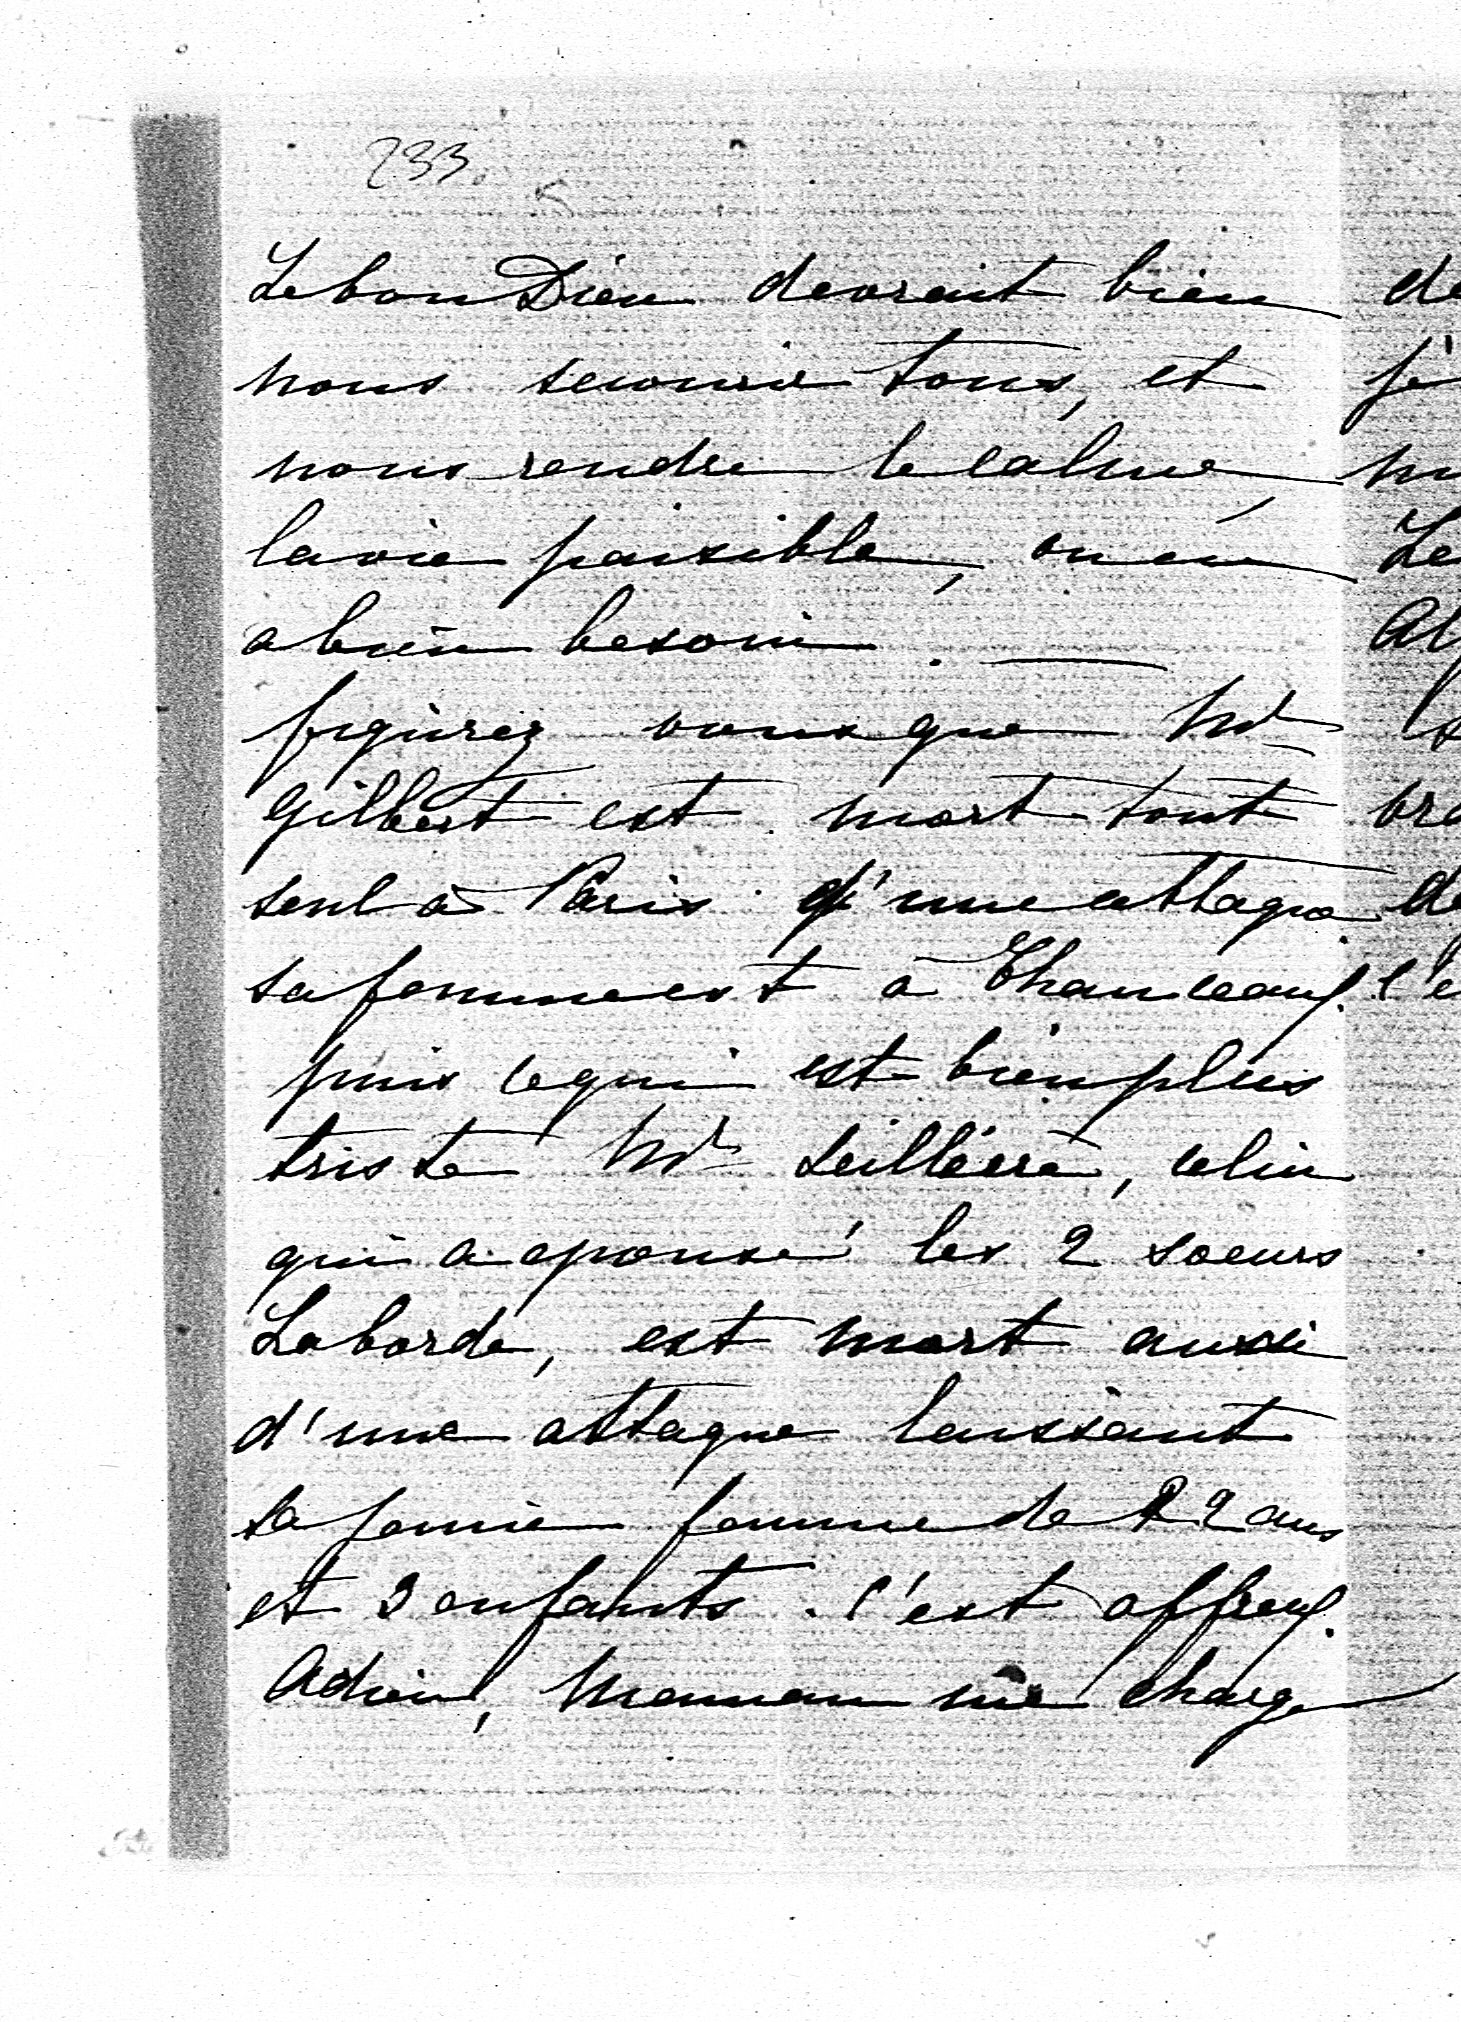 233
Le bon Dieu devrait bien de
nous secourir tous, et je
nous rendre le calme,
la vie paisible, on en Le
a bien besoin. —
figurez vous que Mr
Gilbert est mort tout
seul à Paris d'une attaque de
sa femme est à Chanceaux. l'e
puis ce qui est bien plus
triste Mr Seillière, celui
qui a épousé les 2 soeurs
Laborde, est mort aussi
d'une attaque laissant
sa jeune femme de 22 ans
et 3 enfants. c'est affreux.
Adieu, Maman me charge